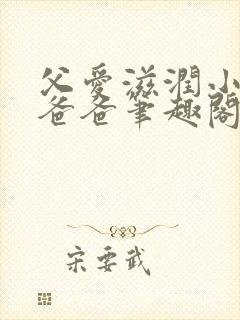 父爱滋润小
爸爸笔趣阁
宋要武